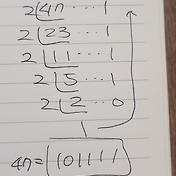 2 47 ... 1
2 23 ... 1
2 11 ... 1
2 5 ... 1
2 2 ... 0
1
47 = 101111